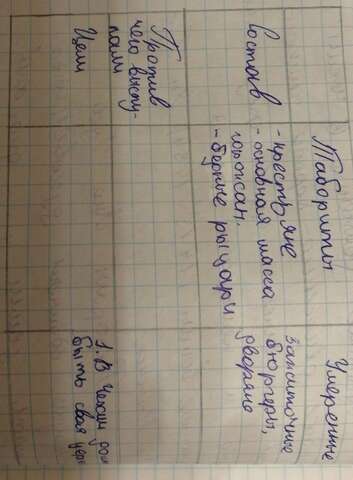 Табориты
Умеренные
Состав
- крестьяне
- основная масса
горожан.
- бедные рыцари
зажиточные
бюргеры,
дворяне
Против
чего высту-
пали
Цели
1. В Чехии
быть своя